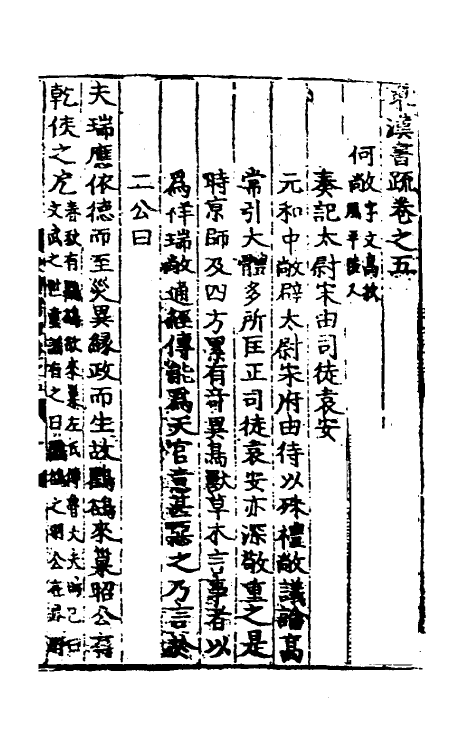 東漢書疏卷之五
何敞字文高扶風平陵人
奏記太尉宋由司徒袁安
元和中敞辟太尉宋府由待以殊禮敞議論高
常引大體多所匡正司徒袁安亦深敬重之是
時京師及四方累有奇異鳥獸草木言事者以
為祥瑞敞通經傳能為天官意甚惡之乃言於
二公曰
夫瑞應依德而至災異緣政而生故鸜鵒來巢昭公有
乾侯之厄春秋有鸜鵒來巢左氏傳魯大夫師己曰
文武之世童謠有之曰鸜鵒之